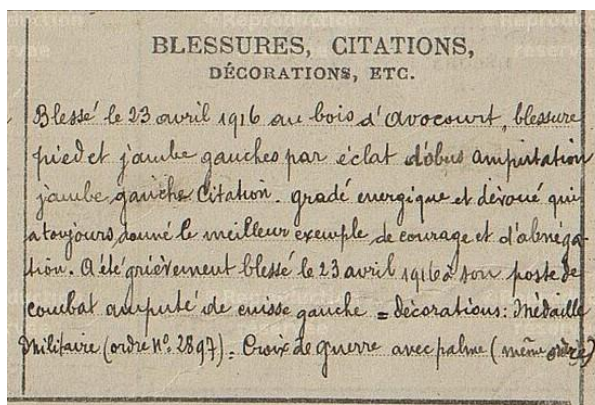 ©Reproduction
réservée
BLESSURES, CITATIONS,
DÉCORATIONS, ETC.
Blessé le 23 avril 1916 au bois d'Avocourt, blessure
pied et jambe gauches par éclat d'obus amputation
jambe gauche Citation. gradé energique et dévoué qui
a toujours donné le meilleur exemple de courage et d'abnéga-
tion. A été grièvement blessé le 23 avril 1916 à son poste de
combat amputé de cuisse gauche = décorations: Médaille
Militaire (ordre N° 2897). Croix de guerre avec palme (même ordre)